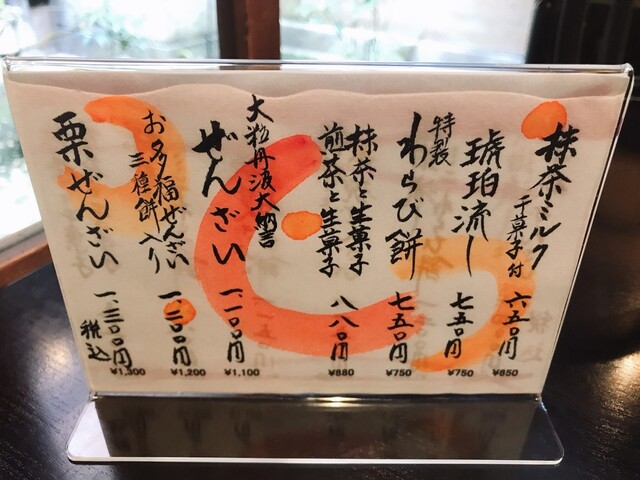 抹茶ミルク
干菓子付
六五〇円
¥650
琥珀流し
七五〇円
¥750
特製
わらび餅
七五〇円
¥750
抹茶と生菓子
煎茶と生菓子
八八〇円
¥880
大粒丹波大納言
ぜんざい
一、一〇〇円
¥1,100
お多福ぜんざい
三種餅入り
一、二〇〇円
¥1,200
栗ぜんざい
一、三〇〇円
¥1,300
税込